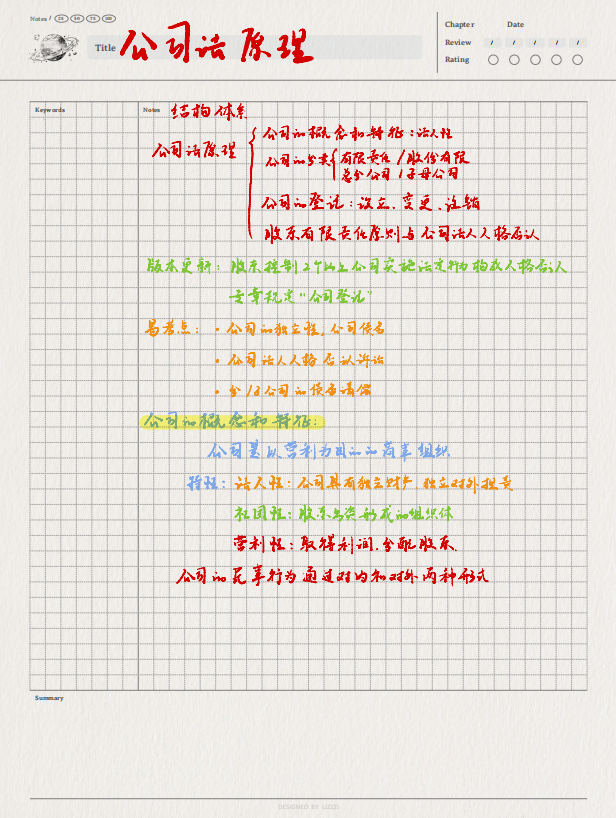 Notes / 25 50 75 100
Title 公司法原理
Chapter Date
Review / / / / /
Rating
Keywords
Notes 结构体系
公司法原理
公司的概念和特征:法人性
公司的分类 有限责任/股份有限
总分公司/子母公司
公司的登记:设立、变更、注销
股东有限责任原则与公司法人人格否认
版本更新:股东控制2个以上公司实施法定行为构成人格否认
专章规定“公司登记”
易考点:·公司的独立性,公司债务
·公司法人人格否认诉讼
·分/子公司的债务清偿
公司的概念和特征:
公司是以营利为目的的商事组织
特性:法人性:公司具有独立财产,独立对外担责
社团性:股东与类形成的组织体
营利性:取得利润,分配股东.
公司的民事行为通过对内和对外两种形式
Summary
DESIGNED BY